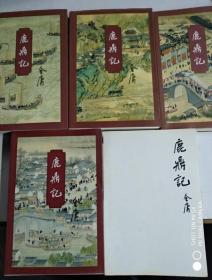 鹿鼎記
金庸
鹿鼎記
金庸
鹿鼎記
鹿鼎記
金庸
鹿鼎記
金庸